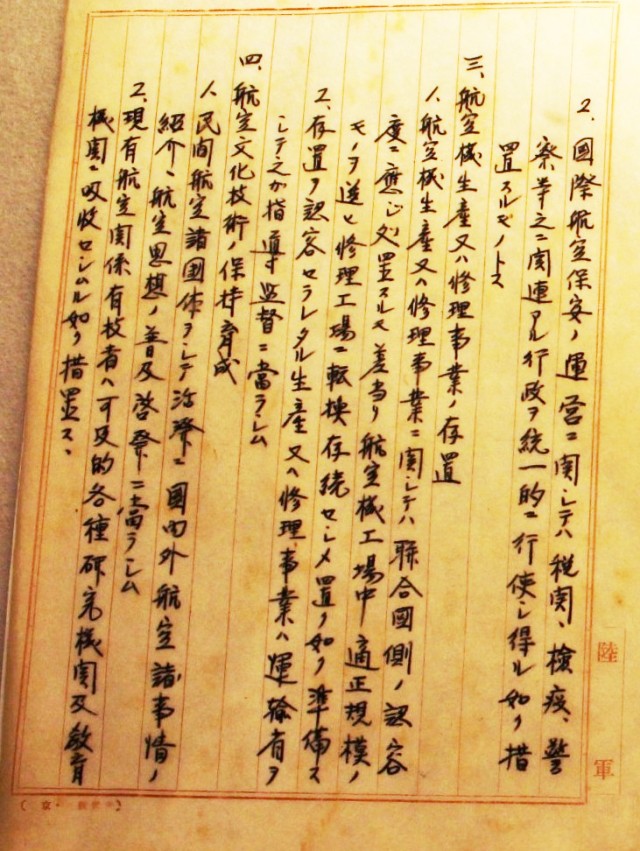 2、國際航空保安ノ運営ニ関シテハ税関、検疫、警
察等之ニ関連アル行政ヲ統一的ニ行使シ得ル如ク措
置スルモノトス
三、航空機生産又ハ修理事業ノ存置
1、航空機生産又ハ修理事業ニ関シテハ聯合國側ノ認容
度ニ應ジ処置スルモ差当リ航空機工場中適正規模ノ
モノヲ選ビ修理工場ニ転換存続セシメ置ク如ク準備ス
2、存置ヲ認容セラレタル生産又ハ修理事業ハ運輸省ヲ
シテ之が指導監督ニ當ラシム
四、航空文化技術ノ保持育成
1、民間航空諸國体ヲシテ活発ニ國内外航空諸事情ノ
紹介、航空思想ノ普及啓発ニ當ラシム
2、現有航空関係有技者ハ可及的各種研究機関及敎育
機関ニ吸收セシムル如ク措置ス、
陸軍